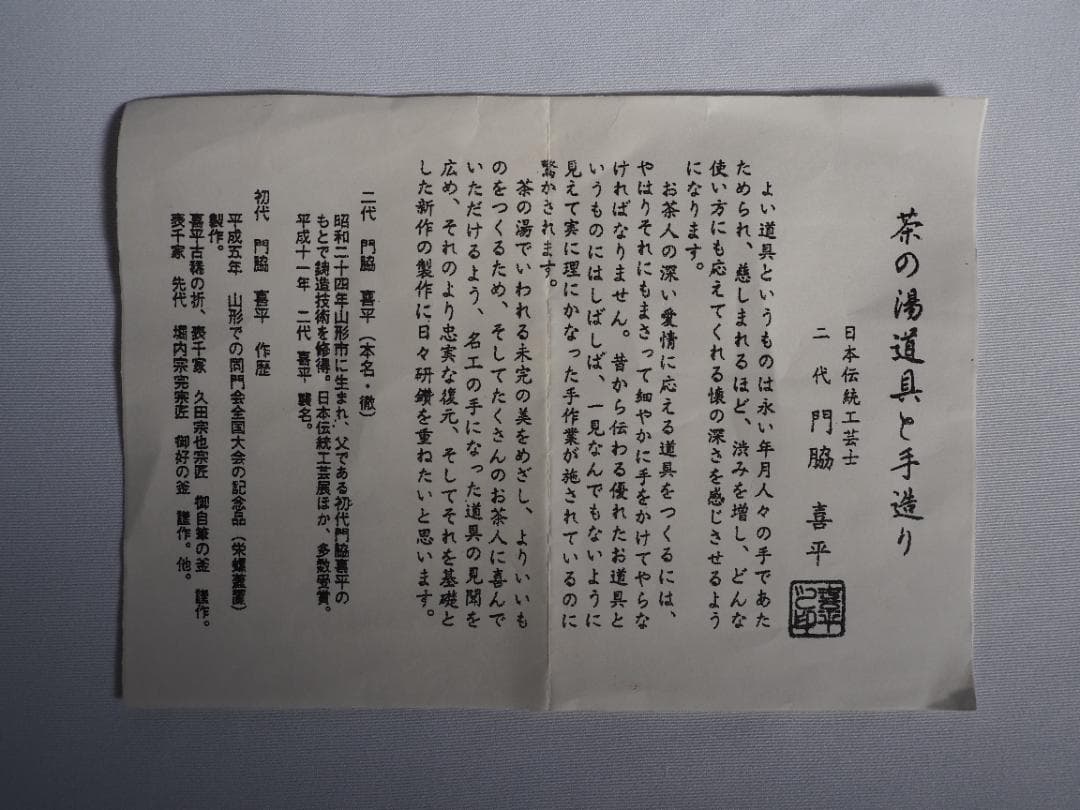 茶の湯道具と手造り
日本伝統工芸士
二代 門脇 喜平
喜平之印
よい道具というものは永い年月人々の手であた
ためられ、慈しまれるほど、渋みを増し、どんな
使い方にも応えてくれる懐の深さを感じさせるよう
になります。
お茶人の深い愛情に応える道具をつくるには、
やはりそれにもまさって細やかに手をかけてやらな
ければなりません。昔から伝わる優れたお道具と
いうものにはしばしば、一見なんでもないように
見えて実に理にかなった手作業が施されているのに
驚かされます。
茶の湯でいわれる未完の美をめざし、よりいいも
のをつくるため、そしてたくさんのお茶人に喜んで
いただけるよう、名工の手になった道具の見聞を
広め、それのより忠実な復元、そしてそれを基礎と
した新作の製作に日々研鑽を重ねたいと思います。
二代 門脇 喜平(本名・徹)
昭和二十四年山形市に生まれ、父である初代門脇喜平の
もとで鋳造技術を修得。日本伝統工芸展ほか、多数受賞。
平成十一年 二代 喜平 襲名。
初代 門脇 喜平 作歴
平成五年 山形での同門会全国大会の記念品(栄螺蓋置)
製作。
喜平古稀の折、表千家 久田宗也宗匠 御自筆の釜 謹作。
表千家 先代 堀内宗完宗匠 御好の釜 謹作。他。